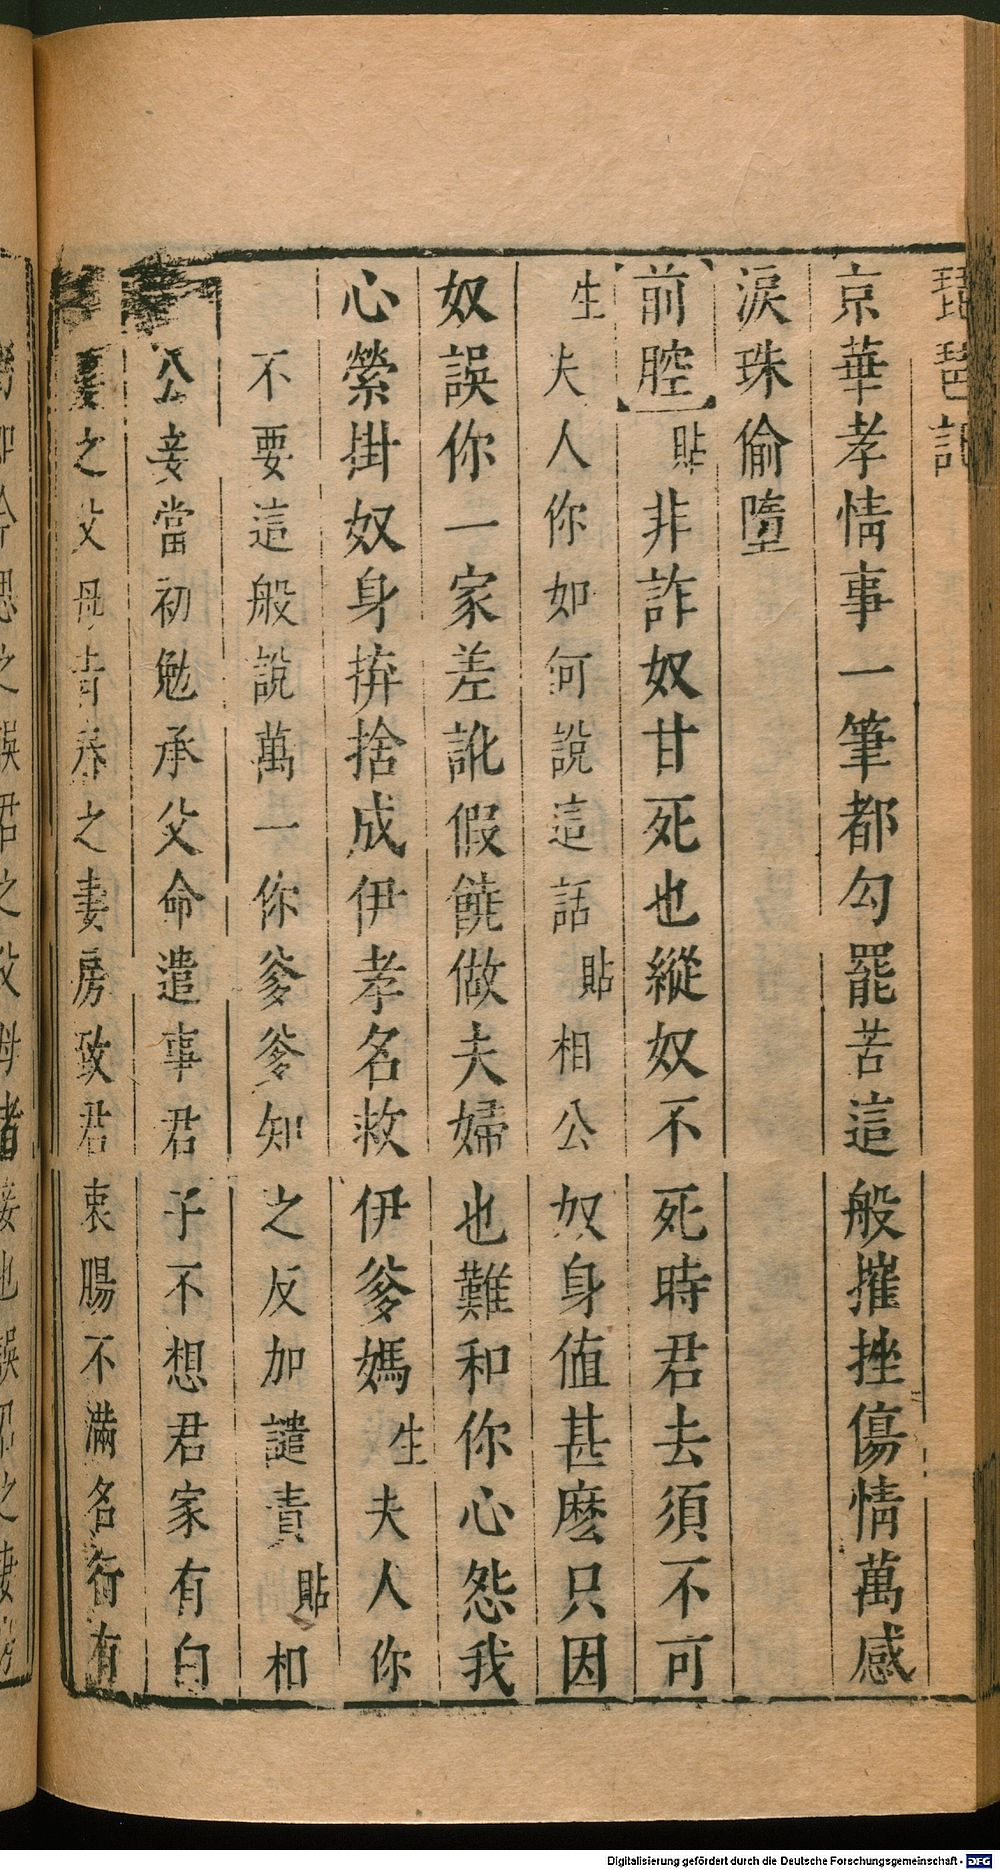 琵琶記
京華孝情事一筆都勾罷苦這般摧挫傷情萬感
淚珠偷墮
前腔貼非詐奴甘死也縱奴不死時君去須不可
生夫人你如何說這話貼相公奴身值甚麽只因
奴誤你一家差訛假饒做夫婦也難和你心怨我
心縈掛奴身拚捨成伊孝名救伊爹媽生夫人你
不要這般說萬一你爹爹知之反加譴責貼相
公妾當初勉承父命遣事君子不想君家有白
髮之父母青春之妻房致君衷腸不滿名行有
Digitalisierung gefördert durch die Deutsche Forschungsgemeinschaft - DFG